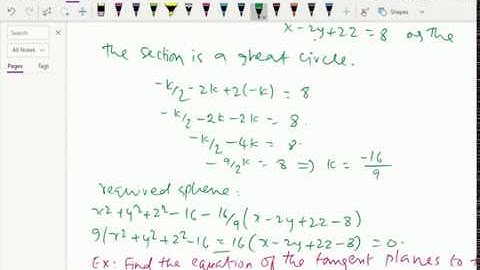 Shapes
Search
All Notes
Pages
x-2y+2z=8 as the
the section is a great circle.
-k/2-2k+2(-k)=8
-k/2-2k-2k=8.
-k/2-4k=8.
-9/2k=8 ⇒ k=-16/9
required sphere:
x²+y²+z²-16-16/9(x-2y+2z-8)
9(x²+y²+z²-16=16(x-2y+2z-8)=0.
Ex: Find the equation of the tangent planes to